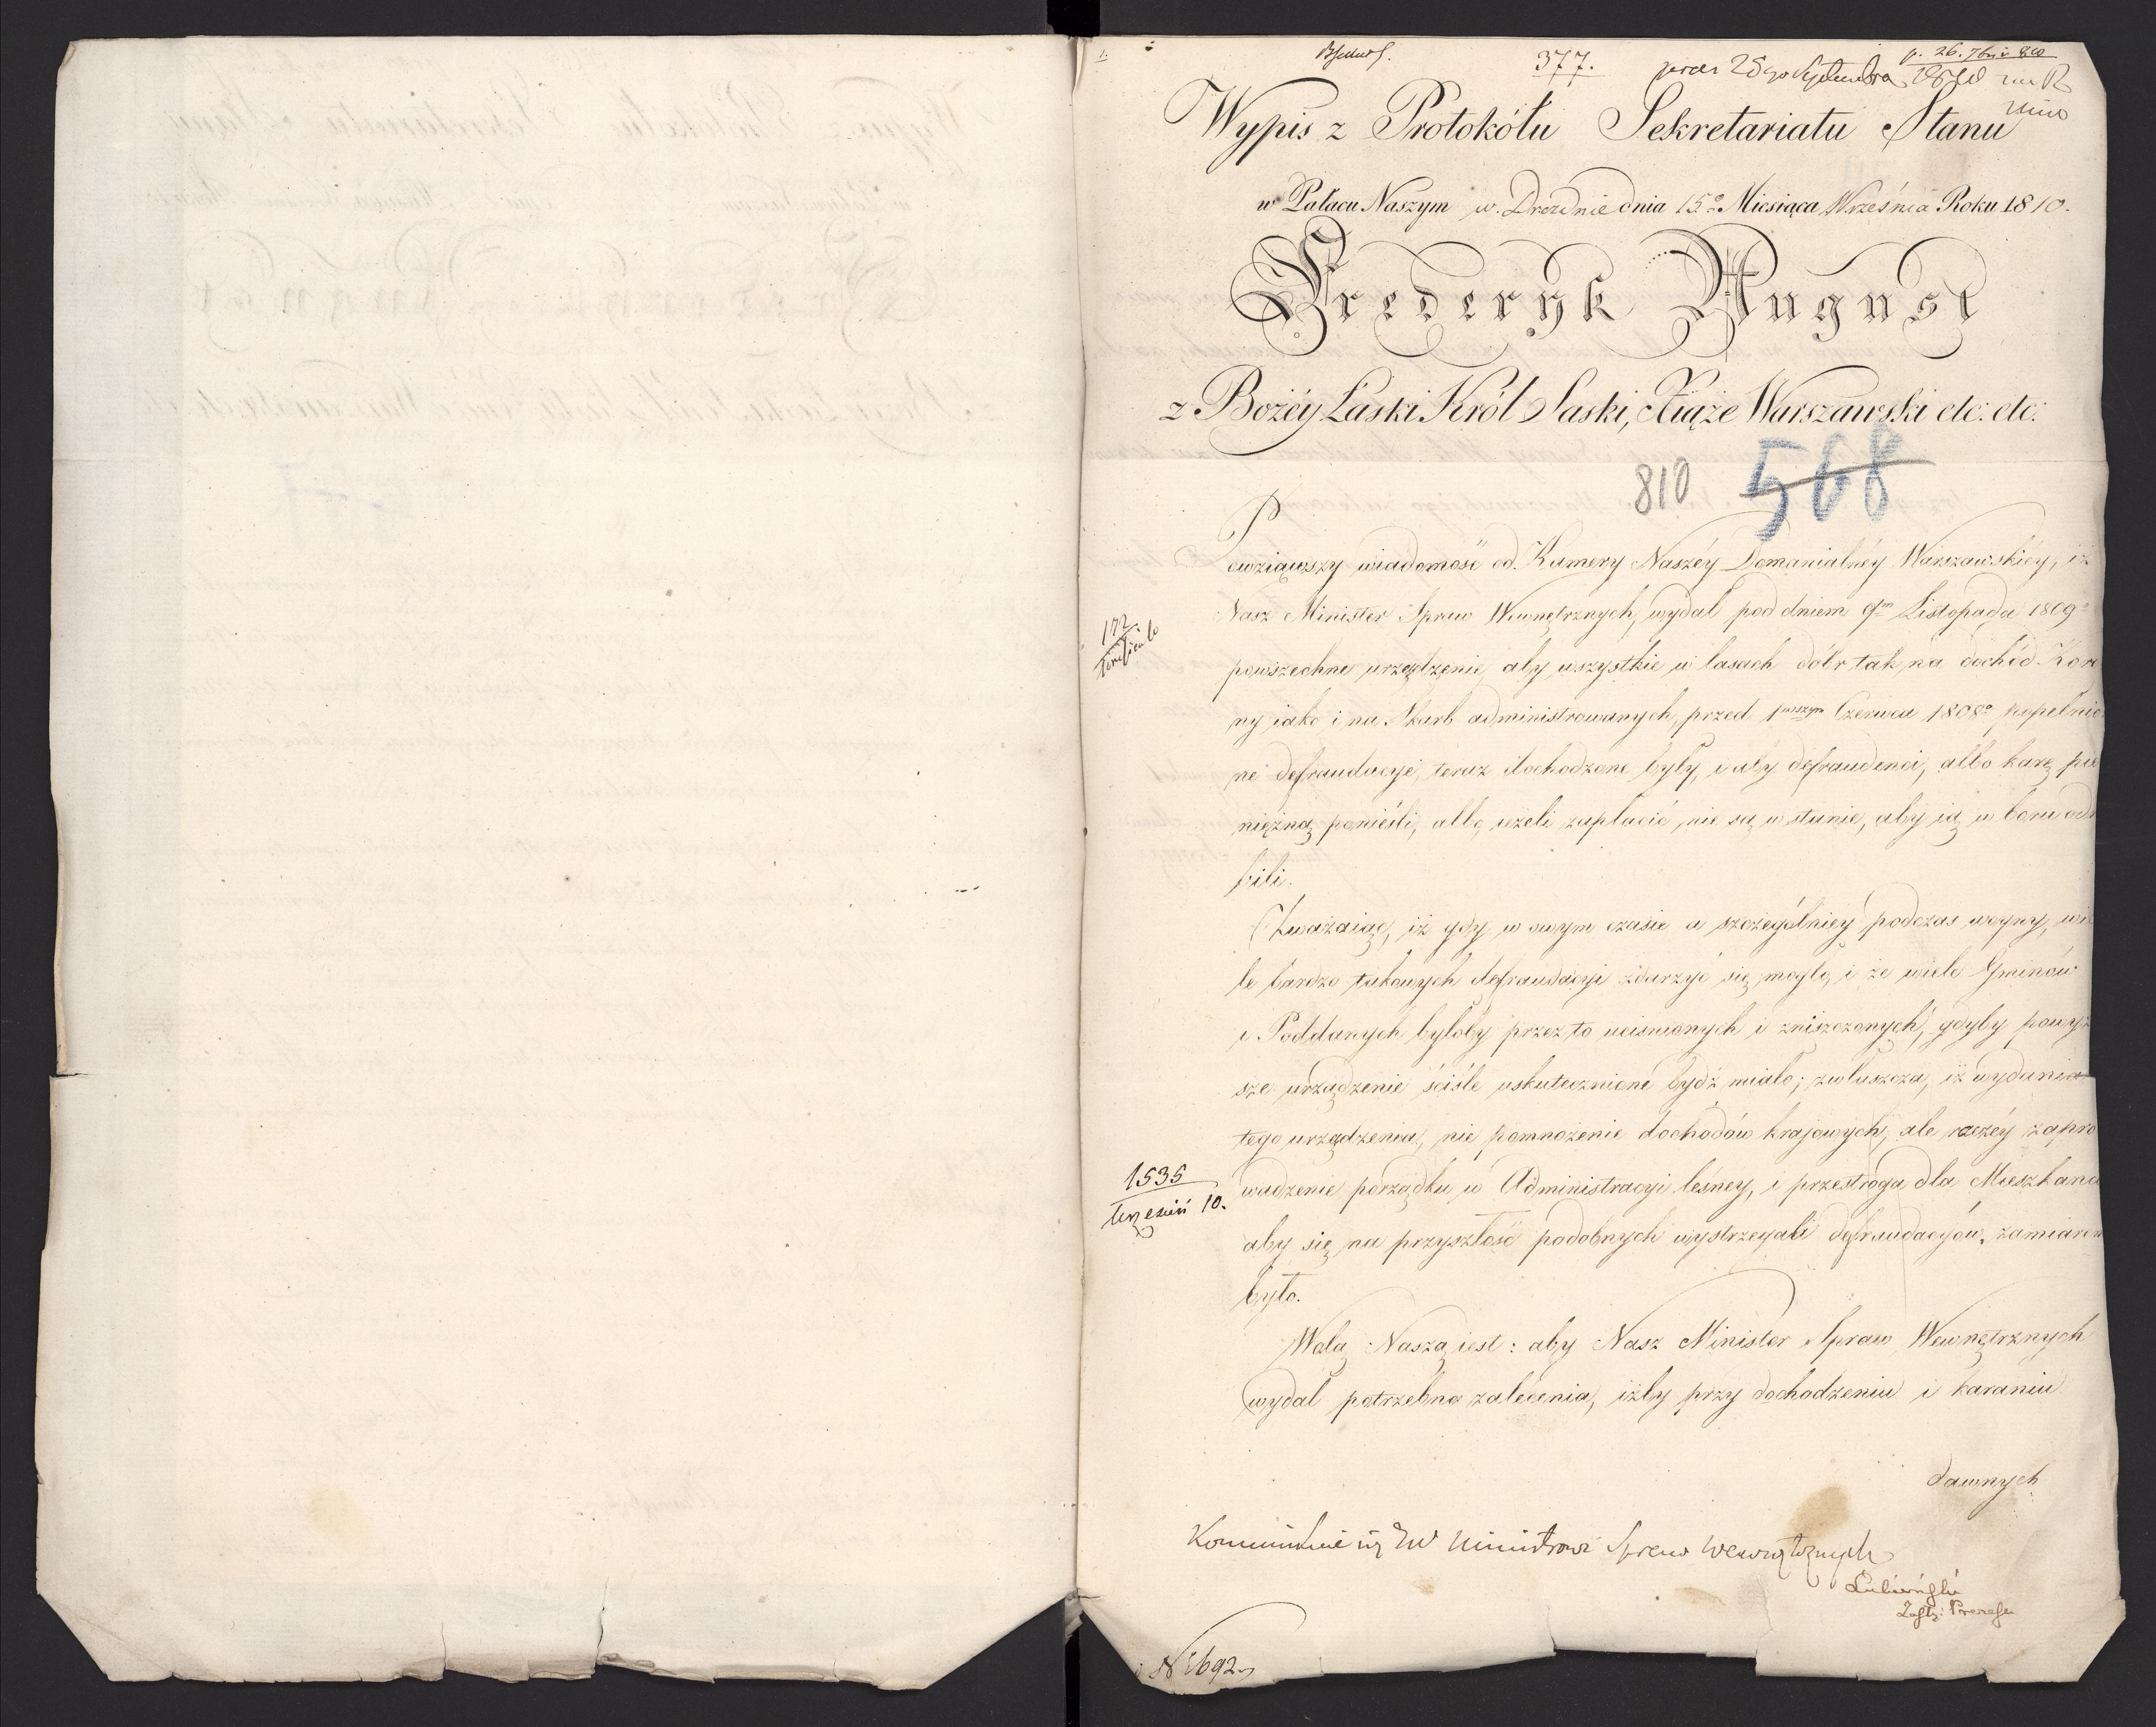 1.
377.
p. 26. 7bris 810
prae: 25go Septembra 1810
Wypis z Protokółu Sekretariatu Stanu
w Pałacu Naszym w Dreźnie dnia 15º Miesiąca Września Roku 1810.
Frederyk August
z Bożéy Łaski Król Saski, Xiąże Warszawski etc: etc:
810 568
Powziąwszy wiadomość od Kamery Naszéy Domanialnéy Warszawskiéy, iż
Nasz Minister Spraw Wewnętrznych, wydał pod dniem 9m Listopada 1809º
powszechne urządzenie, aby wszystkie w lasach dóbr tak na dochód Koro
ny iako i na Skarb administrowanych, przed 1wszym Czerwca 1808º popełnio
ne defraudacye, teraz dochodzone były, i aby defraudenci, albo karę pie
niężną ponieśli, albo ieżeli zapłacić nie są w stanie, aby ią w boru odro
bili.
Zważaiąc, iż gdy w owym czasie a szczególniey podczas woyny, wie
le bardzo takowych defraudacyi zdarzyć się mogło, i że wiele Gminów
i Poddanych byłoby przez to uciśnionych i zniszczonych, gdyby powyż
sze urządzenie ściśle uskutecznione bydź miało; zwłaszcza, iż wydania
tego urządzenia, nie pomnożenie dochodów krajowych, ale raczéy zapro
1535
wadzenie porządku w Administracyi leśney, i przestroga dla Mieszkanc
Wrzesień 10.
aby się na przyszłość podobnych wystrzegali defraudacyów, zamiarem
było.
Wolą Naszą iest: aby Nasz Minister Spraw Wewnętrznych
wydał potrzebne zalecenia, iżby przy dochodzeniu i karaniu
dawnych
Kommunikuie się JW Ministrowi Spraw Wewnętrznych
Łubieński
Zastę: Prezesa
N 1692